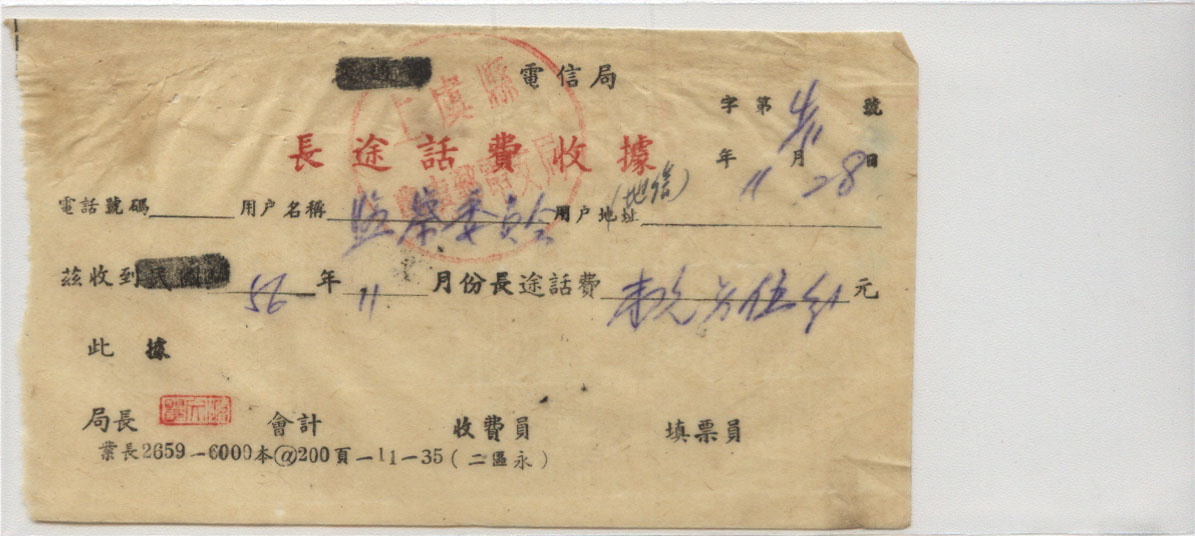 電信局
上虞縣
字第 號
長途話費收據
年11月28日
(地信)
電話號碼 用户名稱 監察委員会 用户地址
茲收到民國 56年11月份長途話費 元
此據
局長 會計 收費員 填票員
業長2659-6000本@200頁-11-35(二區永)